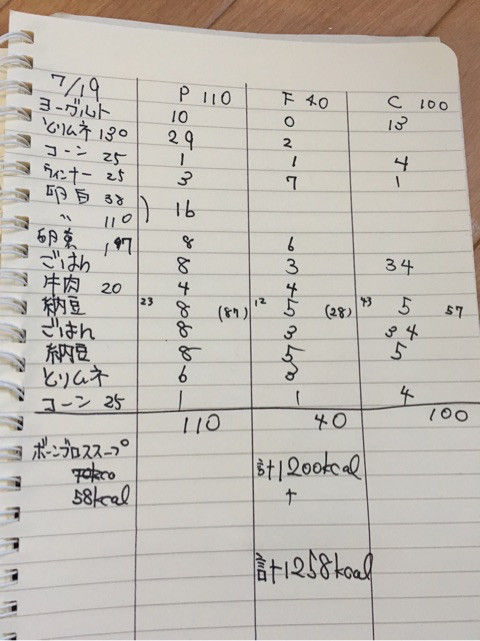 7/19 P 110 F 40 C 100
ヨーグルト 10 0 13
とりムネ 130 29 2
コーン 25 1 1 4
ウィンナー 25 3 7 1
卵白 38
〃 110 ) 16
卵黄 1つ 8 6
ごはん 8 3 34
牛肉 20 4 4
納豆 23 8 (87) 12 5 (28) 43 5 57
ごはん 8 3 34
納豆 8 5 5
とりムネ 6 0
コーン 25 1 1 4
110 40 100
ボーンブロススープ
58kcal
計1200kcal
+
計1258kcal